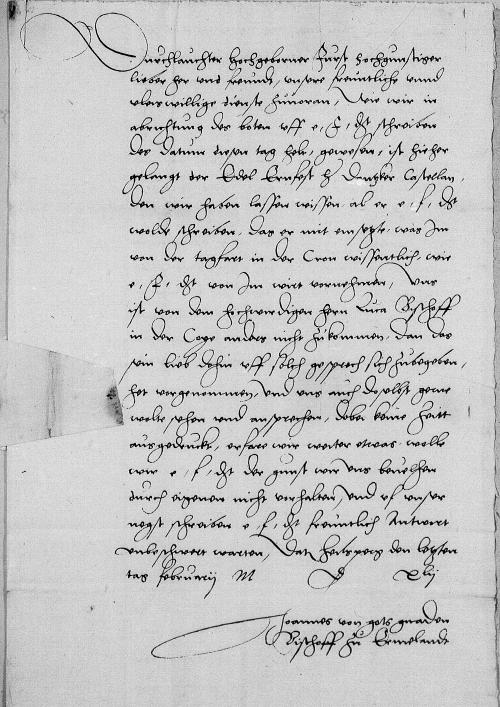 Durchlauchter Hochgeborner Furst hochgunstiger
lieber her und freundt, unsere freuntliche unnd
vleiswillige dienste zuvoran, Wie wir in
abrichtung des boten uff e, f, dt schreiben
des datum diesen tag helt, gewesen, ist hieher
gelangt der Edel Ernfest h Dantzker Castellan,
den wir haben lassen wissen, al er e, f, dt
wolde schreiben, das er mit einsetzte, was Im
von der tagfart in der Cron wissentlich, wie
e, f, dt von Im wirt vornehmen, Uns
ist von dem hochwirdigen hern Luca Bischoff
in der Coye anders nicht zukommen, dan das
sein lieb dohin uff solch gesprech sich zubegeben,
het vorgenommen, und uns auch doselbst gerne
wolte sehen und ansprechen, dobei keine Zeitt
ausgedruckt, erfare wir weiter etwas wolle
wir e, f, dt der gunst wir uns bevelhen
durch eigenen nicht vorhalten, und uf unser
negst schreiben e, f, dt freuntlich Antwort
unbeschwert warten, Dat Heilsperg den letzten
tag february M D xlij
Joannes von gots gnaden
Bischoff zu Ermelandt